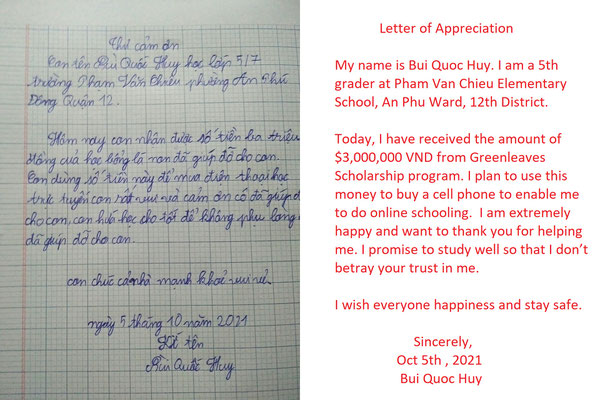 Thư cảm ơn
Con tên Bùi Quốc Huy học lớp 5/7
trường Phạm Văn Chiêu phường An Phú
Đông Quận 12.
Hôm nay con nhận được số tiền ba triệu
đồng của học bổng lá non đã giúp đỡ cho con.
Con dùng số tiền này để mua điện thoại học
trực tuyến con rất vui và cảm ơn cô đã giúp đ
cho con, con hứa học cho tốt để không phụ lòng
đã giúp đỡ cho con.
con chúc cả nhà mạnh khoẻ vui vẻ.
ngày 5 tháng 10 năm 2021
Kí tên
Bùi Quốc Huy
Letter of Appreciation
My name is Bui Quoc Huy. I am a 5th
grader at Pham Van Chieu Elementary
School, An Phu Ward, 12th District.
Today, I have received the amount of
$3,000,000 VND from Greenleaves
Scholarship program. I plan to use this
money to buy a cell phone to enable me
to do online schooling.  I am extremely
happy and want to thank you for helping
me. I promise to study well so that I don't
betray your trust in me.
I wish everyone happiness and stay safe.
Sincerely,
Oct 5th , 2021
Bui Quoc Huy